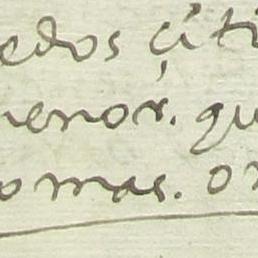 edos çiti
menor. qu
o mas. or